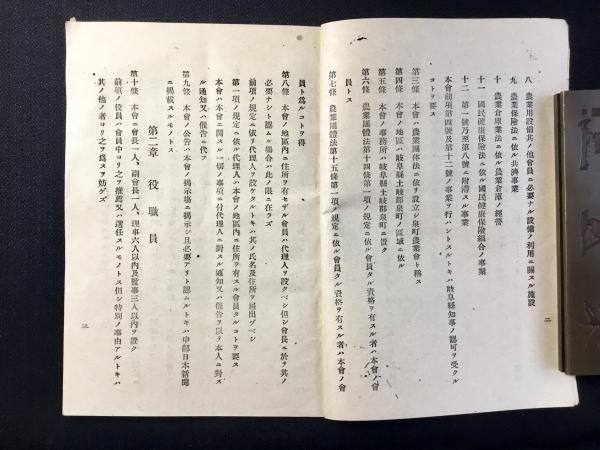 八 農業用設備其ノ他會員ニ必要ナル設備ノ利用ニ關スル施設
九 農業保險法ニ依ル共濟事業
十 農業倉庫業法ニ依ル農業倉庫ノ經營
十一 國民健康保險法ニ依ル國民健康保險組合ノ事業
十二 第一號乃至第八號ニ附滯スル事業
本會前項第四號及第十二號ノ事業ヲ行ハントスルトキハ岐阜縣知事ノ認可ヲ受クル
コトヲ要ス
第三條 本會ハ農業團体法ニ依リ設立シ泉町農業會ト稱ス
第四條 本會ノ地區ハ岐阜縣土岐郡泉町ノ區域ニ依ル
第五條 本會ノ事務所ハ岐阜縣土岐郡泉町ニ置ク
第六條 農業團體法第十四條第一項ノ規定ニ依ル會員タル資格ヲ有スル者ハ本會ノ會
員トス
第七條 農業團體法第十五條第一項ノ規定ニ依ル會員タル資格ヲ有スル者ハ本會ノ會
二
員ト爲ルコトヲ得
第八條 本會ノ地區內ニ住所ヲ有セザル會員ハ代理人ヲ設クベシ但シ會長ニ於テ其ノ
必要ナシト認ムル場合ハ此ノ限ニ在ラズ
前項ノ規定ニ依リ代理人ヲ設ケタルトキハ其ノ氏名及住所ヲ屆出ヅベシ
第一項ノ規定ニ依ル代理人ハ本會ノ地區內ニ住所ヲ有スル會員タルコトヲ要ス
本會ハ本會ニ關スル一切ノ事項ニ付代理人ニ對スル通知又ハ催告ヲ以テ本人ニ對ス
ル通知又ハ催告ニ代フ
第九條 本會ノ公告ハ本會ノ揭示塲ニ揭示シ且必要アリト認ムルトキハ中部日本新聞
ニ揭載スルモノトス
第二章 役職員
第十條 本會ニ會長一人、副會長一人、理事六人以內及監事三人以內ヲ置ク
前項ノ役員ハ會員中ヨリ之ヲ推薦又ハ選任スルモノトス但シ特別ノ事由アルトキハ
其ノ他ノ者ヨリ之ヲ爲スヲ妨ゲズ
三